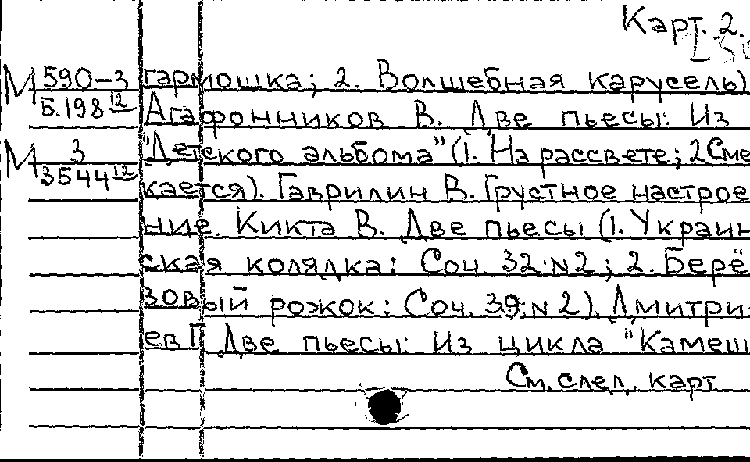 Карт. 2.
М 590-3 гармошка; 2. Волшебная карусель)
Б.198 12 Агафонников В. Две пьесы: Из
М 3 "Детского альбома" (1. На рассвете; 2 Сме
3544 12 кается). Гаврилин В. Грустное настрое
ние. Кикта В. Две пьесы (1. Украин
ская колядка: Соч. 32 N2; 2. Берё
зовый рожок: Соч. 39 N 2). Дмитри
ев Г. Две пьесы: Из цикла "Камеш
См. след. карт